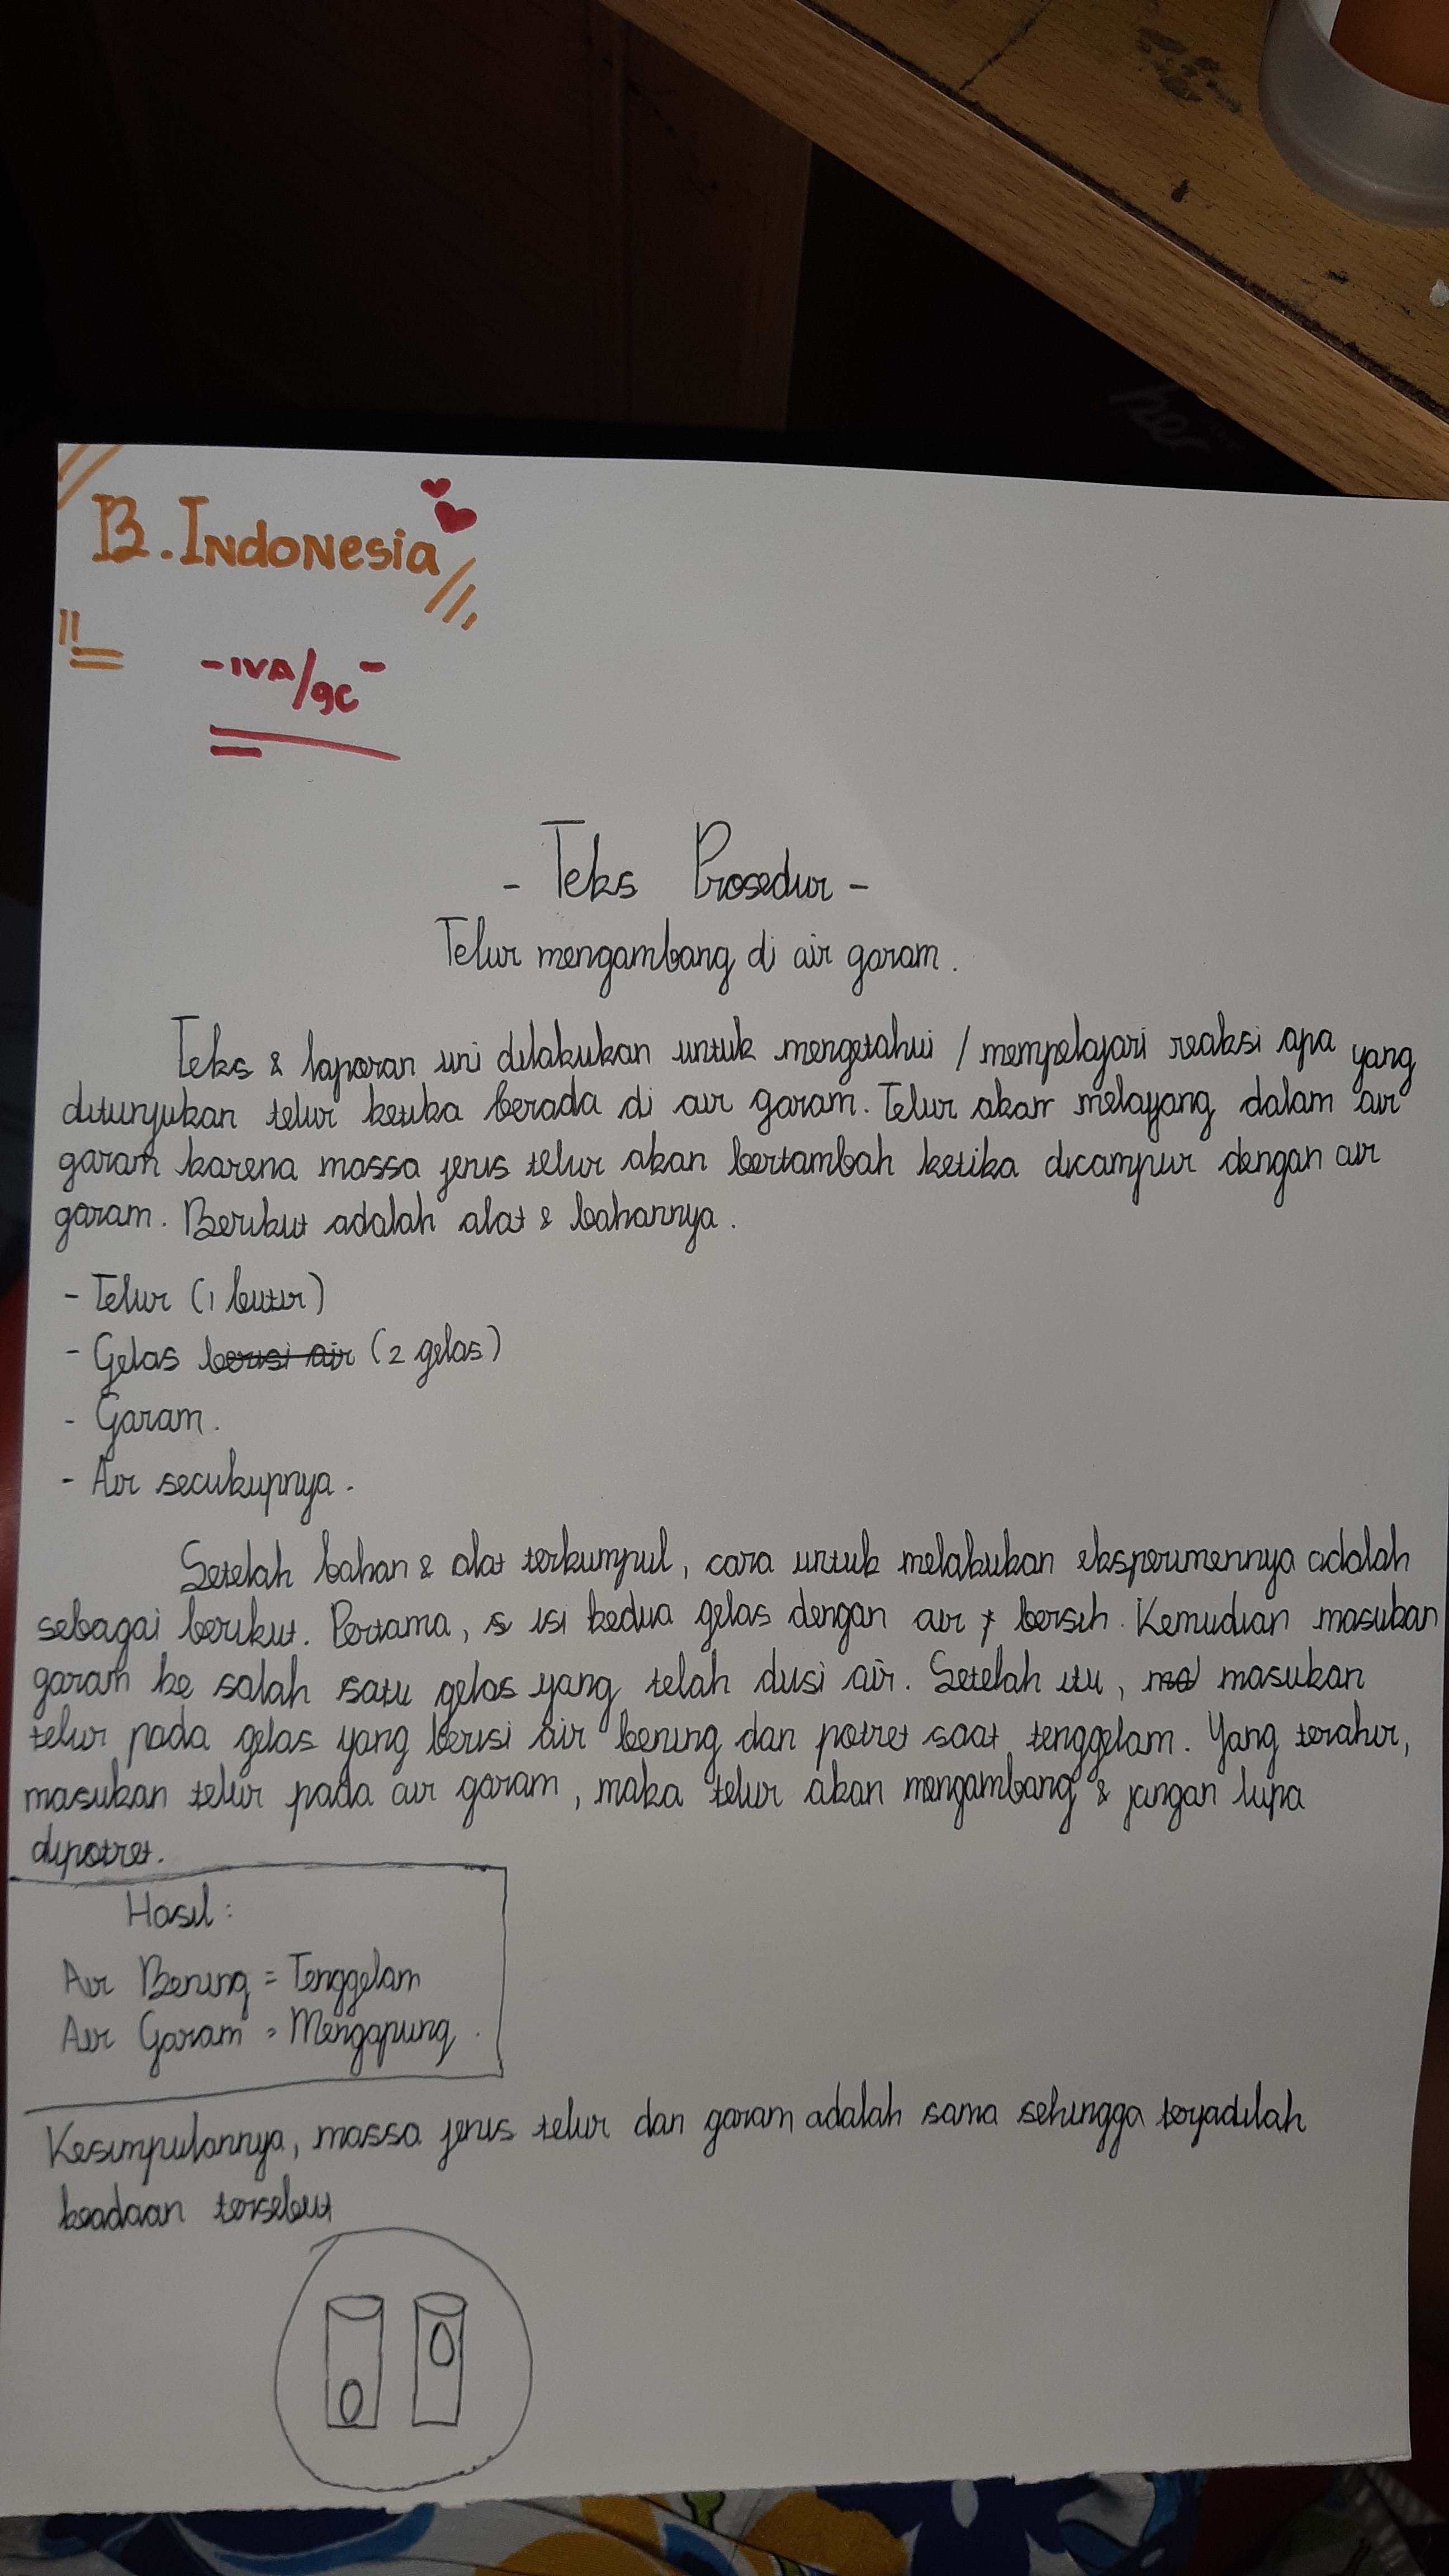 B. Indonesia
- IVA/9C -
- Teks Prosedur -
Telur mengambang di air garam.
Teks & laporan ini dilakukan untuk mengetahui / mempelajari reaksi apa yang
ditunjukan telur ketika berada di air garam. Telur akan melayang dalam air
garam karena massa jenis telur akan bertambah ketika dicampur dengan air
garam. Berikut adalah alat & bahannya.
- Telur (1 butir)
- Gelas berisi air (2 gelas)
- Garam.
- Air secukupnya.
Setelah bahan & alat terkumpul, cara untuk melakukan eksperimennya adalah
sebagai berikut. Pertama, isi kedua gelas dengan air bersih. Kemudian masukan
garam ke salah satu gelas yang telah diisi air. Setelah itu, masukan
telur pada gelas yang berisi air bening dan potret saat tenggelam. Yang terahir,
masukan telur pada air garam, maka telur akan mengambang & jangan lupa
dipotret.
Hasil :
Air Bening = Tenggelam
Air Garam = Mengapung.
Kesimpulannya, massa jenis telur dan garam adalah sama sehingga terjadilah
keadaan tersebut